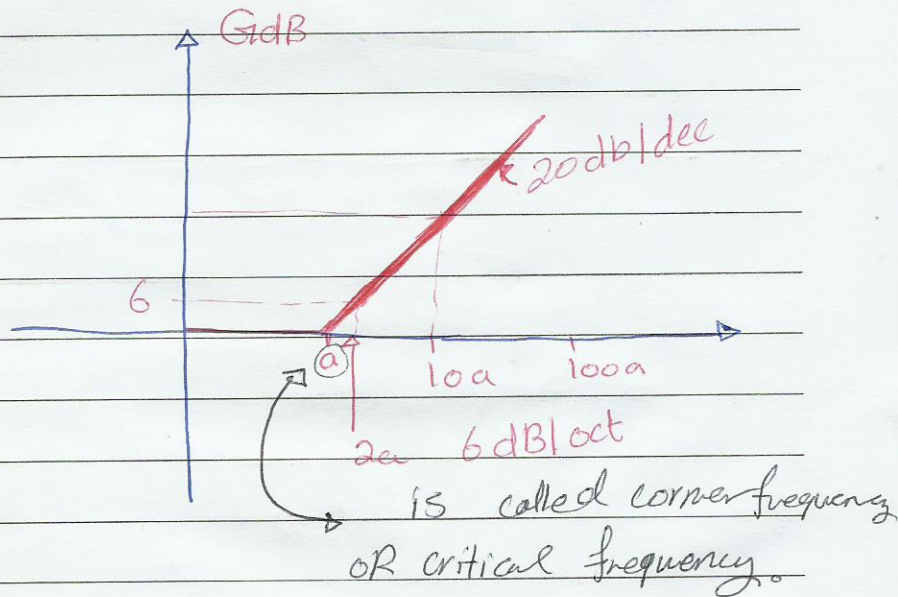 GdB
20db/dec
6
a
10a
100a
2a
6dB/oct
is called corner frequency
OR critical frequency.